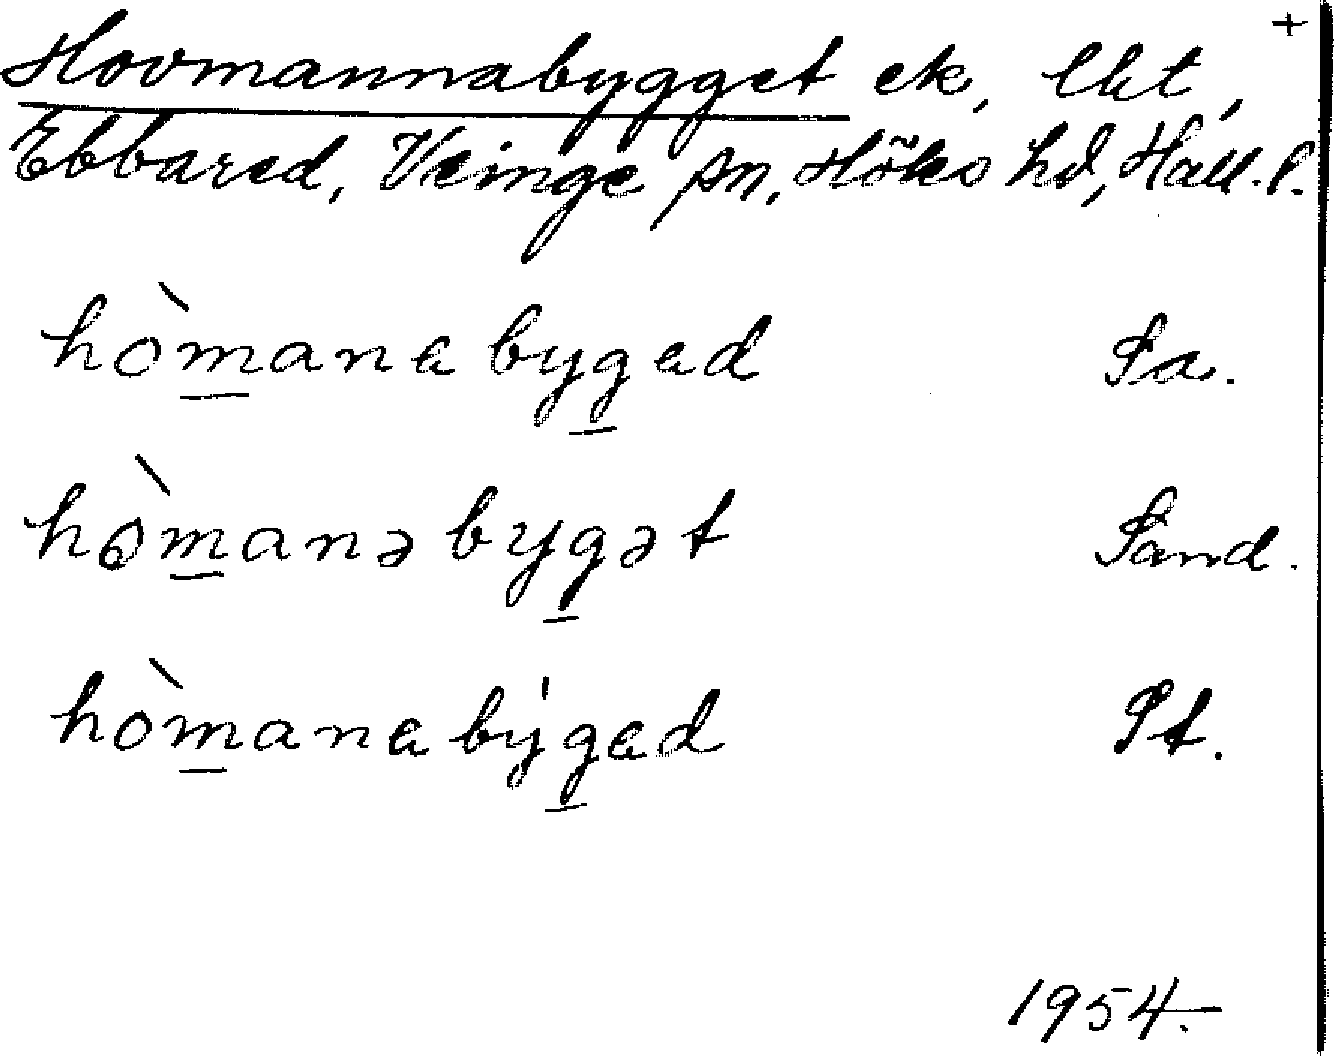 +
Hovmannabygget ek, lht,
Ebbared, Veinge sn, Höks hd, Hall. l.
hòmanabygad Pa.
hòmanəbygət Sand.
hòmanabýgad Pt.
1954.